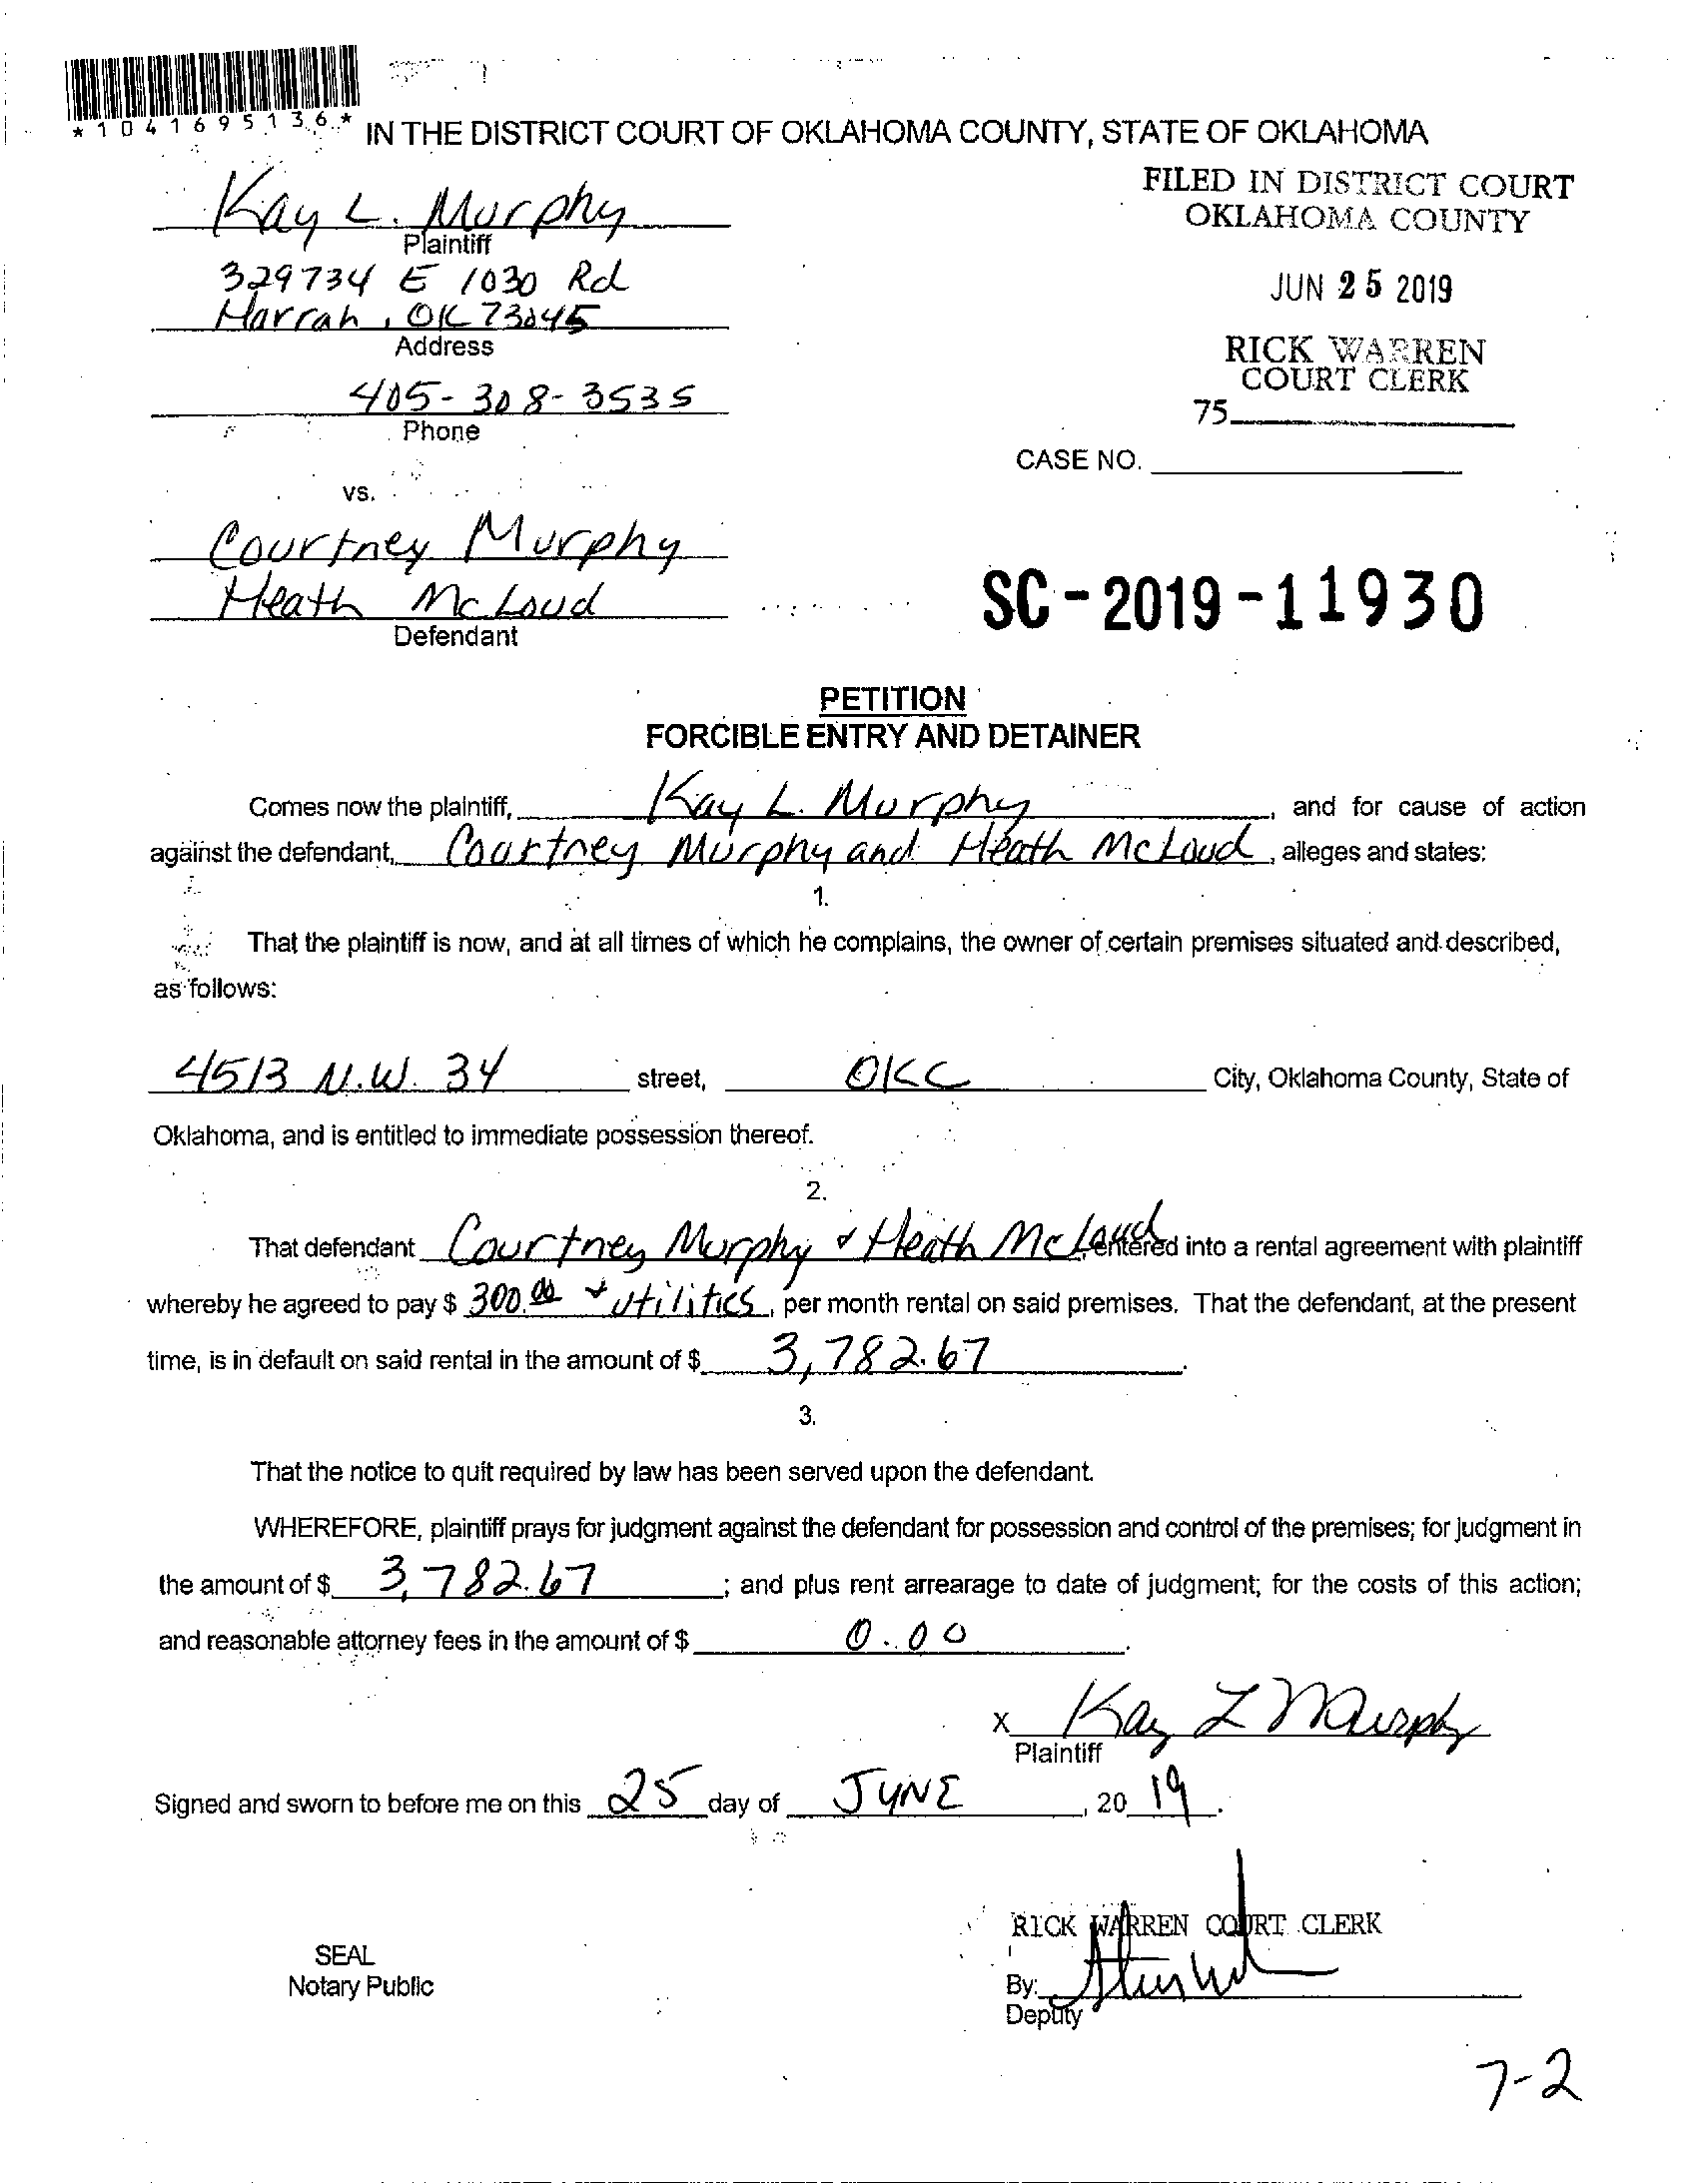 *1041695136*
IN THE DISTRICT COURT OF OKLAHOMA COUNTY, STATE OF OKLAHOMA
FILED IN DISTRICT COURT
OKLAHOMA COUNTY
JUN 25 2019
RICK WARREN
COURT CLERK
75
Kay L. Murphy
Plaintiff
329734 E 1030 Rd
Harrah, OK 73045
Address
405-308-3535
Phone
CASE NO.
vs.
Courtney Murphy
Heath McLoud
Defendant
SC-2019-11930
PETITION
FORCIBLE ENTRY AND DETAINER
Comes now the plaintiff, Kay L. Murphy, and for cause of action
against the defendant, Courtney Murphy and Heath McLoud, alleges and states:
1.
That the plaintiff is now, and at all times of which he complains, the owner of certain premises situated and described,
as follows:
4513 N.W. 34 street, OKC City, Oklahoma County, State of
Oklahoma, and is entitled to immediate possession thereof.
2.
That defendant Courtney Murphy & Heath McLoud, entered into a rental agreement with plaintiff
whereby he agreed to pay $ 300.00 + utilities, per month rental on said premises. That the defendant, at the present
time, is in default on said rental in the amount of $ 3,782.67.
3.
That the notice to quit required by law has been served upon the defendant.
WHEREFORE, plaintiff prays for judgment against the defendant for possession and control of the premises; for judgment in
the amount of $ 3,782.67; and plus rent arrearage to date of judgment; for the costs of this action;
and reasonable attorney fees in the amount of $ 0.00.
x Kay L Murphy
Plaintiff
Signed and sworn to before me on this 25 day of JUNE, 2019.
RICK WARREN COURT CLERK
SEAL
Notary Public
By:
Deputy
7-2